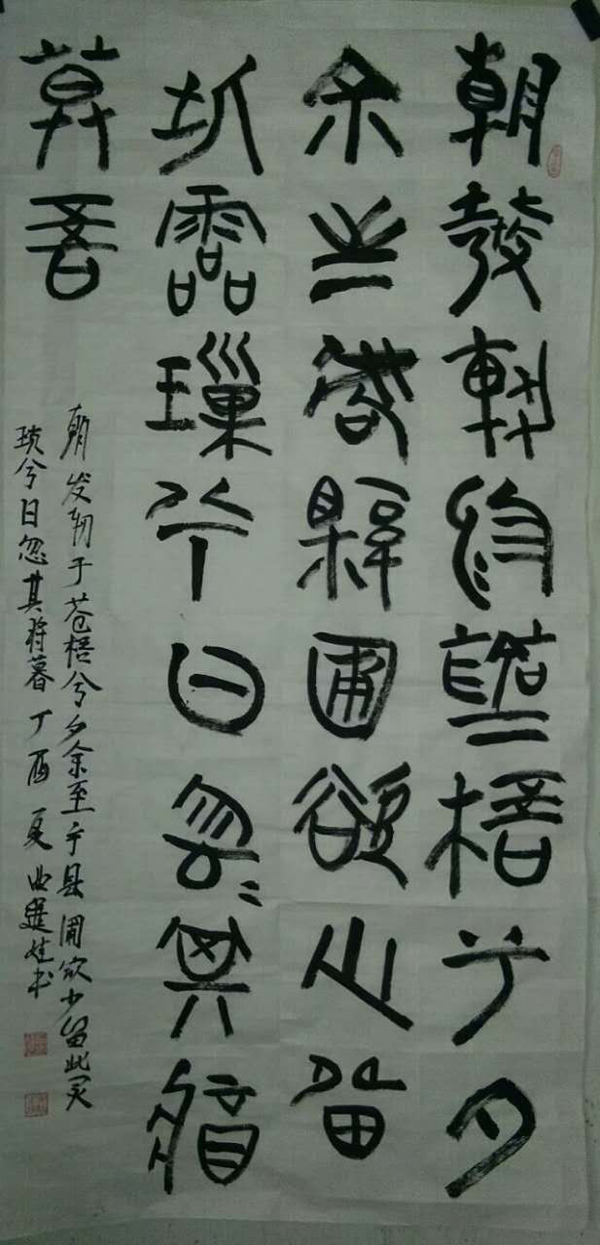 朝發軔於蒼梧兮夕
余至乎縣圃欲少留
此靈瑣兮日忽〻其將
暮吾
朝发轫于苍梧兮夕余至乎县圃欲少留此灵
琐兮日忽其将暮 丁酉夏 曲建书